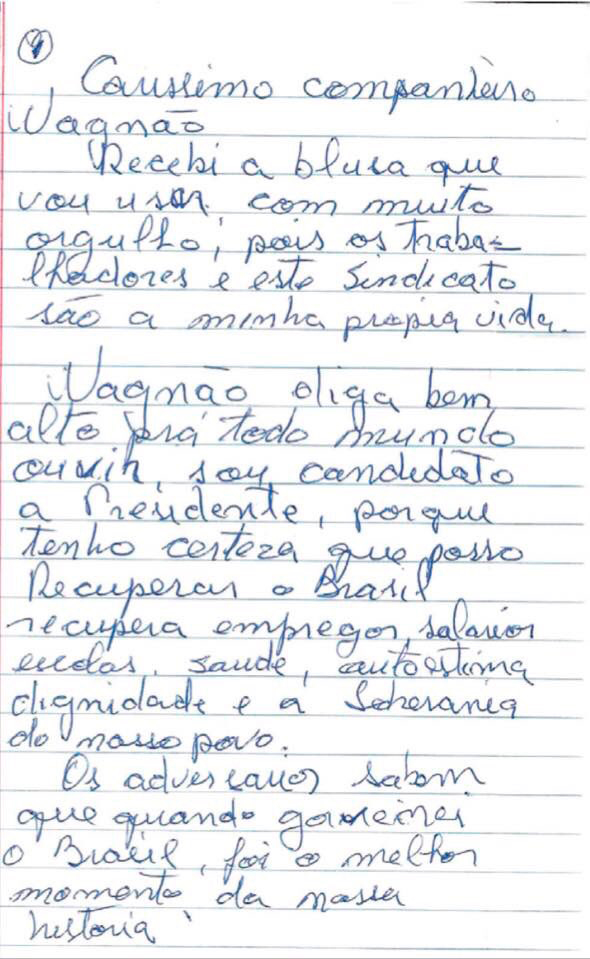 1
Carissimo companheiro
Wagnão
Recebi a blusa que
vou usar com muito
orgulho, pois os traba-
lhadores e este Sindicato
são a minha propria vida.
Wagnão diga bem
alto prá todo mundo
ouvir, sou candidato
a Presidente, porque
tenho certeza que posso
Recuperar o Brasil
recupera empregos, salários
saude, autoestima
dignidade e a Soberania
do nosso povo.
Os adversarios sabem
que quando governei
o Brasil, foi o melhor
momento da nossa
historia